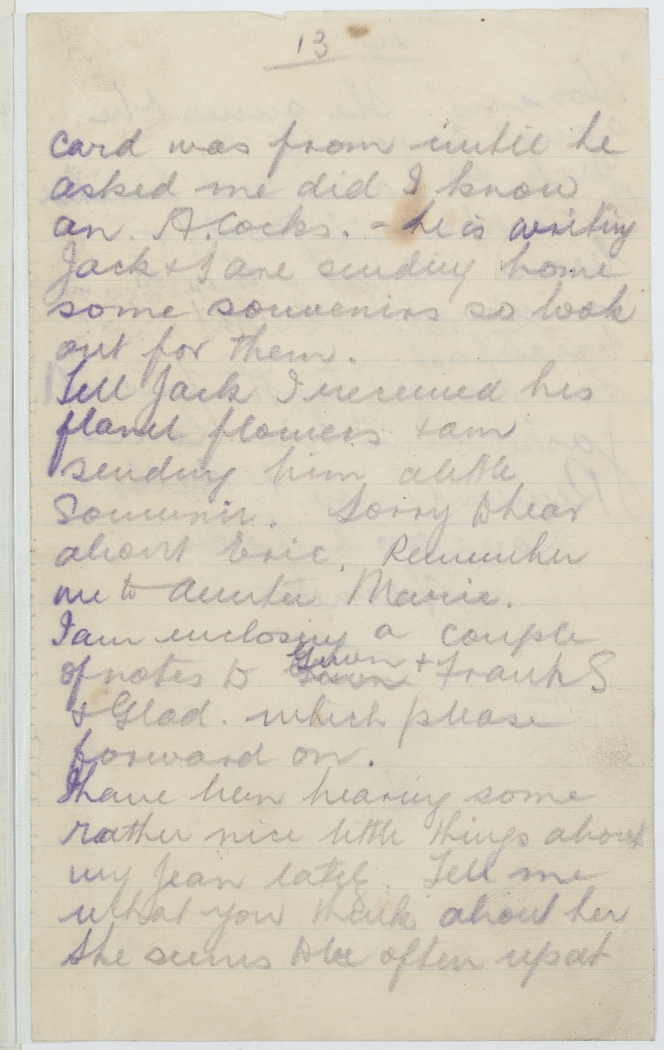 13
card was from until he
asked me did I know
an. A. Cocks. - he is writing
Jack & I are sending home
some souvenirs so look
out for them.
Tell Jack I received his
flanel flowers & am
sending him a little
Souvenir. Sorry to hear
about Eric. Remember
me to Auntie Marie.
I am enclosing a couple
of notes to Gwen & Frank S
& Glad. which please
forward on.
I have been hearing some
rather nice little things about
my Jean lately. Tell me
what you think about her
She seems to be often up at